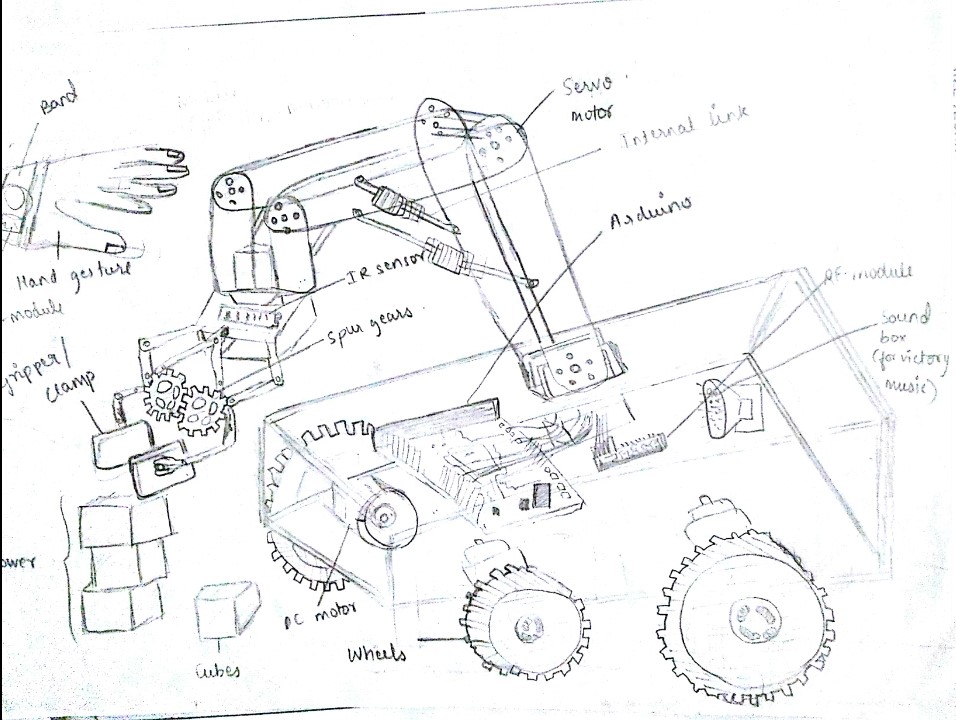 Band
Servo
motor
Internal link
Arduino
Hand gesture
module
IR sensor
RF-module
Sound
box
(for victory
music)
Spur gears
gripper/
clamp
ower
DC motor
Wheels
Cubes